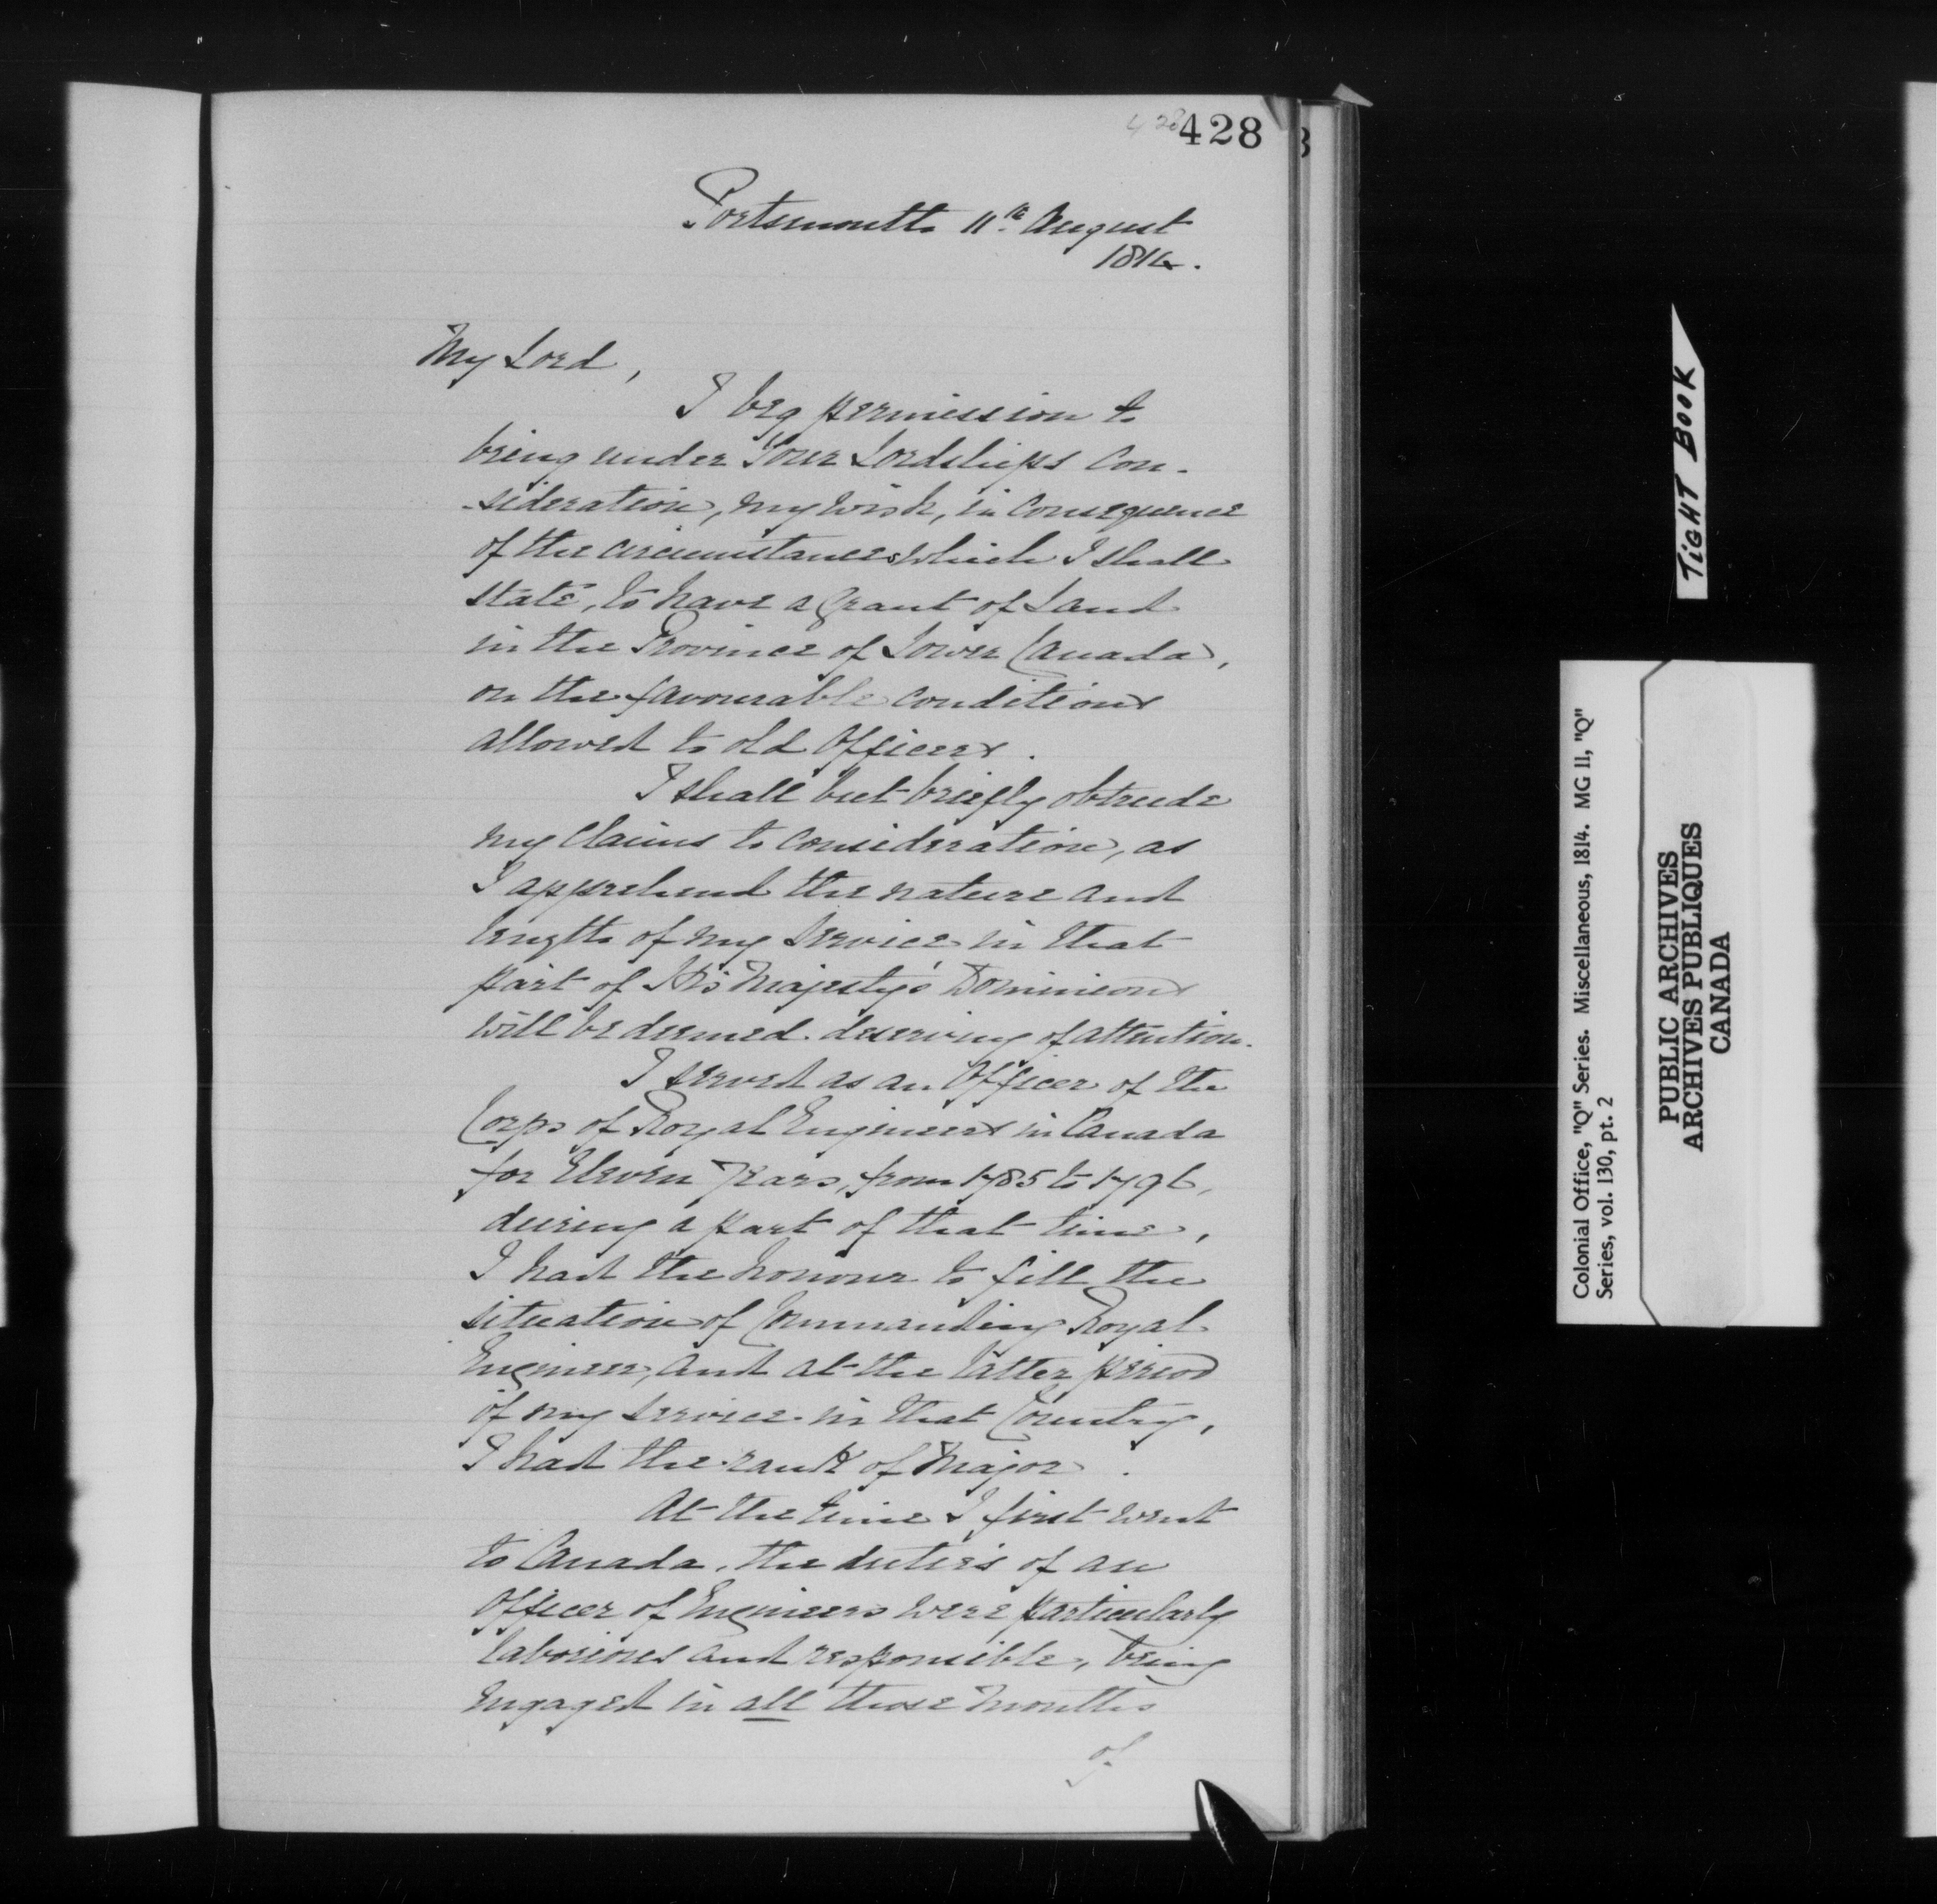 428
428
Portsmouth 11th August
1814.
My Lord,
I beg permission to
bring under Your Lordships con-
-sideration, my wish, in consequence
of the circumstances which I shall
state, to have a Grant of Land
in the Province of Lower Canada,
on the favourable conditions
allowed to old Officers.
I shall but briefly obtrude
my claims to consideration, as
I apprehend the nature and
length of my Service in that
part of His Majesty's Dominions
will be deemed deserving of attention.
I served as an Officer of the
Corps of Royal Engineers in Canada
for Eleven Years, from 1785 to 1796,
during a part of that time,
I had the honour to fill the
situation of Commanding Royal
Engineer, and at the latter period
of my service in that Country,
I had the rank of Major.
At the time I first went
to Canada, the duties of an
Officer of Engineers were particularly
laborious and responsible, being
engaged in all those months
of
TIGHT BOOK
Colonial Office, "Q" Series. Miscellaneous, 1814. MG 11, "Q"
Series, vol. 130, pt. 2
PUBLIC ARCHIVES
ARCHIVES PUBLIQUES
CANADA